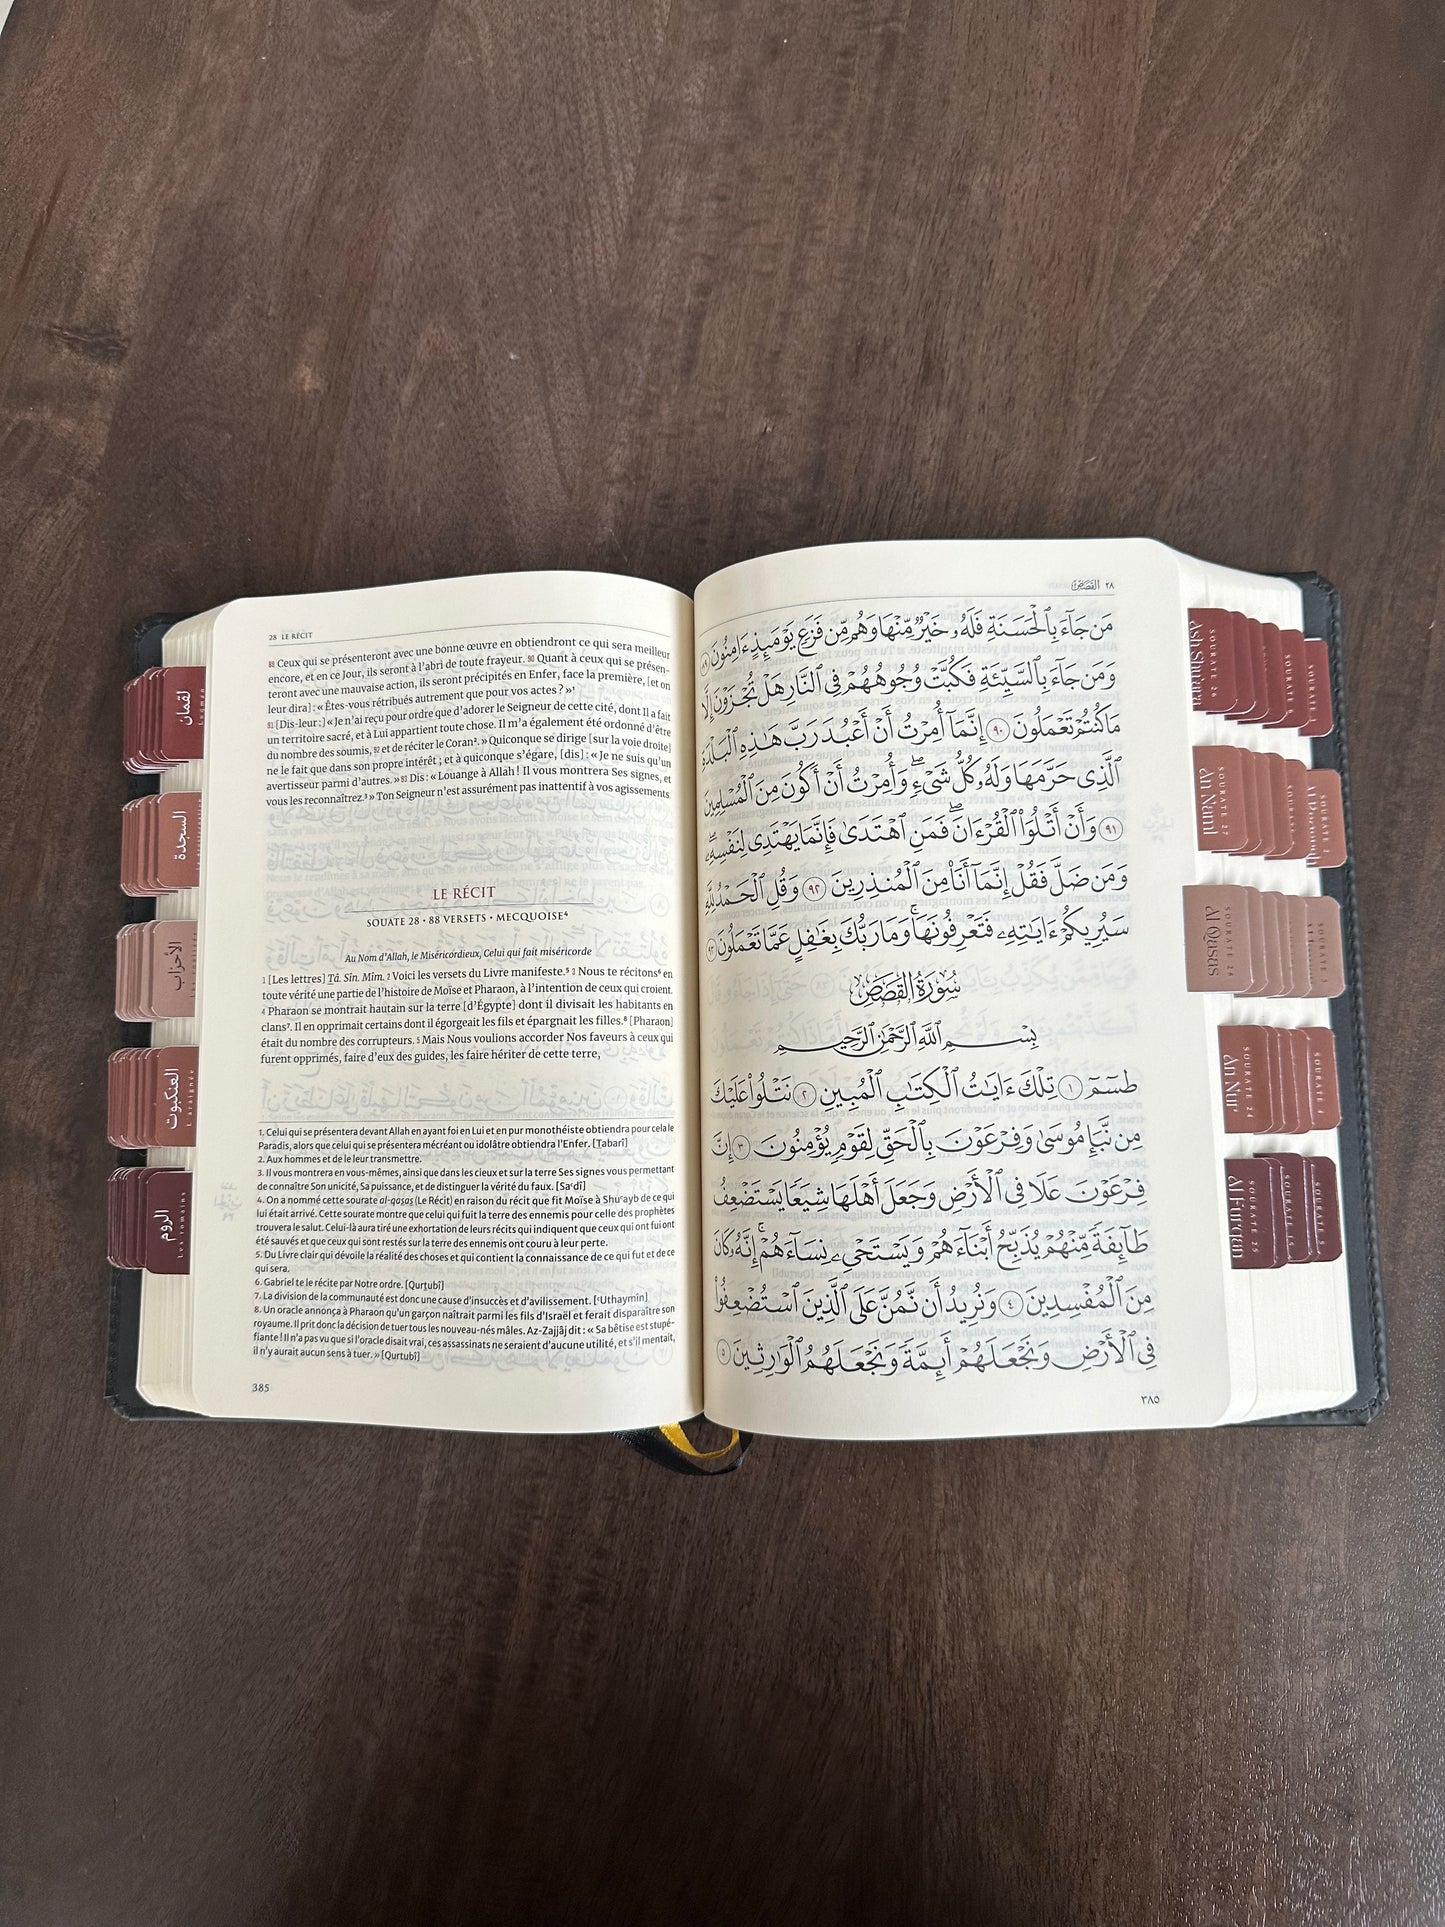 28 LE RÉCIT
89 Ceux qui se présenteront avec une bonne œuvre en obtiendront ce qui sera meilleur
encore, et en ce Jour, ils seront à l'abri de toute frayeur. 90 Quant à ceux qui se présen-
teront avec une mauvaise action, ils seront précipités en Enfer, face la première, [et on
leur dira] : « Êtes-vous rétribués autrement que pour vos actes ? »¹
91 [Dis-leur :] « Je n'ai reçu pour ordre que d'adorer le Seigneur de cette cité, dont Il a fait
un territoire sacré, et à Lui appartient toute chose. Il m'a également été ordonné d'être
du nombre des soumis, 92 et de réciter le Coran². » Quiconque se dirige [sur la voie droite]
ne le fait que dans son propre intérêt ; et à quiconque s'égare, [dis] : « Je ne suis qu'un
avertisseur parmi d'autres. » 93 Dis : « Louange à Allah ! Il vous montrera Ses signes, et
vous les reconnaîtrez.³ » Ton Seigneur n'est assurément pas inattentif à vos agissements.
LE RÉCIT
SOUATE 28 • 88 VERSETS • MECQUOISE⁴
Au Nom d'Allah, le Miséricordieux, Celui qui fait miséricorde
1 [Les lettres] Tâ. Sîn. Mîm. 2 Voici les versets du Livre manifeste.⁵ 3 Nous te récitons⁶ en
toute vérité une partie de l'histoire de Moïse et Pharaon, à l'intention de ceux qui croient.
4 Pharaon se montrait hautain sur la terre [d'Égypte] dont il divisait les habitants en
clans⁷. Il en opprimait certains dont il égorgeait les fils et épargnait les filles.⁸ [Pharaon]
était du nombre des corrupteurs. 5 Mais Nous voulions accorder Nos faveurs à ceux qui
furent opprimés, faire d'eux des guides, les faire hériter de cette terre,
1. Celui qui se présentera devant Allah en ayant foi en Lui et en pur monothéiste obtiendra pour cela le
Paradis, alors que celui qui se présentera mécréant ou idolâtre obtiendra l'Enfer. [Tabarî]
2. Aux hommes et de le leur transmettre.
3. Il vous montrera en vous-mêmes, ainsi que dans les cieux et sur la terre Ses signes vous permettant
de connaître Son unicité, Sa puissance, et de distinguer la vérité du faux. [Saʿdî]
4. On a nommé cette sourate al-qaṣaṣ (Le Récit) en raison du récit que fit Moïse à Shuʿayb de ce qui
lui était arrivé. Cette sourate montre que celui qui fuit la terre des ennemis pour celle des prophètes
trouvera le salut. Celui-là aura tiré une exhortation de leurs récits qui indiquent que ceux qui ont fui ont
été sauvés et que ceux qui sont restés sur la terre des ennemis ont couru à leur perte.
5. Du Livre clair qui dévoile la réalité des choses et qui contient la connaissance de ce qui fut et de ce
qui sera.
6. Gabriel te le récite par Notre ordre. [Qurṭubî]
7. La division de la communauté est donc une cause d'insuccès et d'avilissement. [ʿUthaymîn]
8. Un oracle annonça à Pharaon qu'un garçon naîtrait parmi les fils d'Israël et ferait disparaître son
royaume. Il prit donc la décision de tuer tous les nouveau-nés mâles. Az-Zajjâj dit : « Sa bêtise est stupé-
fiante ! Il n'a pas vu que si l'oracle disait vrai, ces assassinats ne seraient d'aucune utilité, et s'il mentait,
il n'y aurait aucun sens à tuer. » [Qurtubî]
385
٢٨ القَصَص
مَن جَآءَ بِٱلْحَسَنَةِ فَلَهُۥ خَيْرٌ مِّنْهَا وَهُم مِّن فَزَعٍ يَوْمَئِذٍ ءَامِنُونَ ٨٩
وَمَن جَآءَ بِٱلسَّيِّئَةِ فَكُبَّتْ وُجُوهُهُمْ فِى ٱلنَّارِ هَلْ تُجْزَوْنَ إِلَّا
مَا كُنتُمْ تَعْمَلُونَ ٩٠ إِنَّمَآ أُمِرْتُ أَنْ أَعْبُدَ رَبَّ هَٰذِهِ ٱلْبَلْدَةِ
ٱلَّذِى حَرَّمَهَا وَلَهُۥ كُلُّ شَىْءٍ ۖ وَأُمِرْتُ أَنْ أَكُونَ مِنَ ٱلْمُسْلِمِينَ
٩١ وَأَنْ أَتْلُوَا۟ ٱلْقُرْءَانَ ۖ فَمَنِ ٱهْتَدَىٰ فَإِنَّمَا يَهْتَدِى لِنَفْسِهِۦ ۖ
وَمَن ضَلَّ فَقُلْ إِنَّمَآ أَنَا۠ مِنَ ٱلْمُنذِرِينَ ٩٢ وَقُلِ ٱلْحَمْدُ لِلَّهِ
سَيُرِيكُمْ ءَايَٰتِهِۦ فَتَعْرِفُونَهَا ۚ وَمَا رَبُّكَ بِغَٰفِلٍ عَمَّا تَعْمَلُونَ ٩٣
سُورَةُ القَصَصِ
بِسْمِ ٱللَّهِ ٱلرَّحْمَٰنِ ٱلرَّحِيمِ
طسٓمٓ ١ تِلْكَ ءَايَٰتُ ٱلْكِتَٰبِ ٱلْمُبِينِ ٢ نَتْلُوا۟ عَلَيْكَ
مِن نَّبَإِ مُوسَىٰ وَفِرْعَوْنَ بِٱلْحَقِّ لِقَوْمٍ يُؤْمِنُونَ ٣ إِنَّ
فِرْعَوْنَ عَلَا فِى ٱلْأَرْضِ وَجَعَلَ أَهْلَهَا شِيَعًا يَسْتَضْعِفُ
طَآئِفَةً مِّنْهُمْ يُذَبِّحُ أَبْنَآءَهُمْ وَيَسْتَحْىِۦ نِسَآءَهُمْ ۚ إِنَّهُۥ كَانَ
مِنَ ٱلْمُفْسِدِينَ ٤ وَنُرِيدُ أَن نَّمُنَّ عَلَى ٱلَّذِينَ ٱسْتُضْعِفُوا۟
فِى ٱلْأَرْضِ وَنَجْعَلَهُمْ أَئِمَّةً وَنَجْعَلَهُمُ ٱلْوَٰرِثِينَ ٥
٣٨٥
لقمان
Luqmân
السجدة
الأحزاب
العنكبوت
L'araignée
الروم
Les romains
Ash Shuʿara
SOURATE 26
An Naml
SOURATE 27
Al Qasas
SOURATE 28
An Nur
SOURATE 24
Al Furqan
SOURATE 25